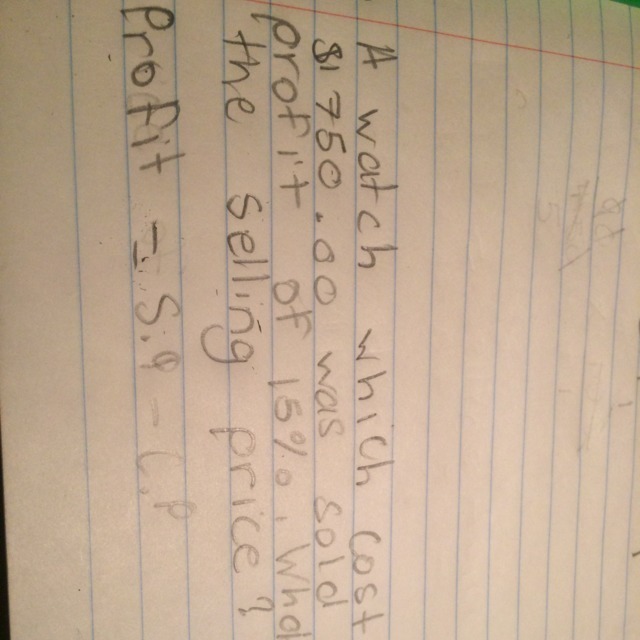 A watch which cost
$1750.00 was sold
profit of 15%. What
the selling price?
Profit = S.P - C.P